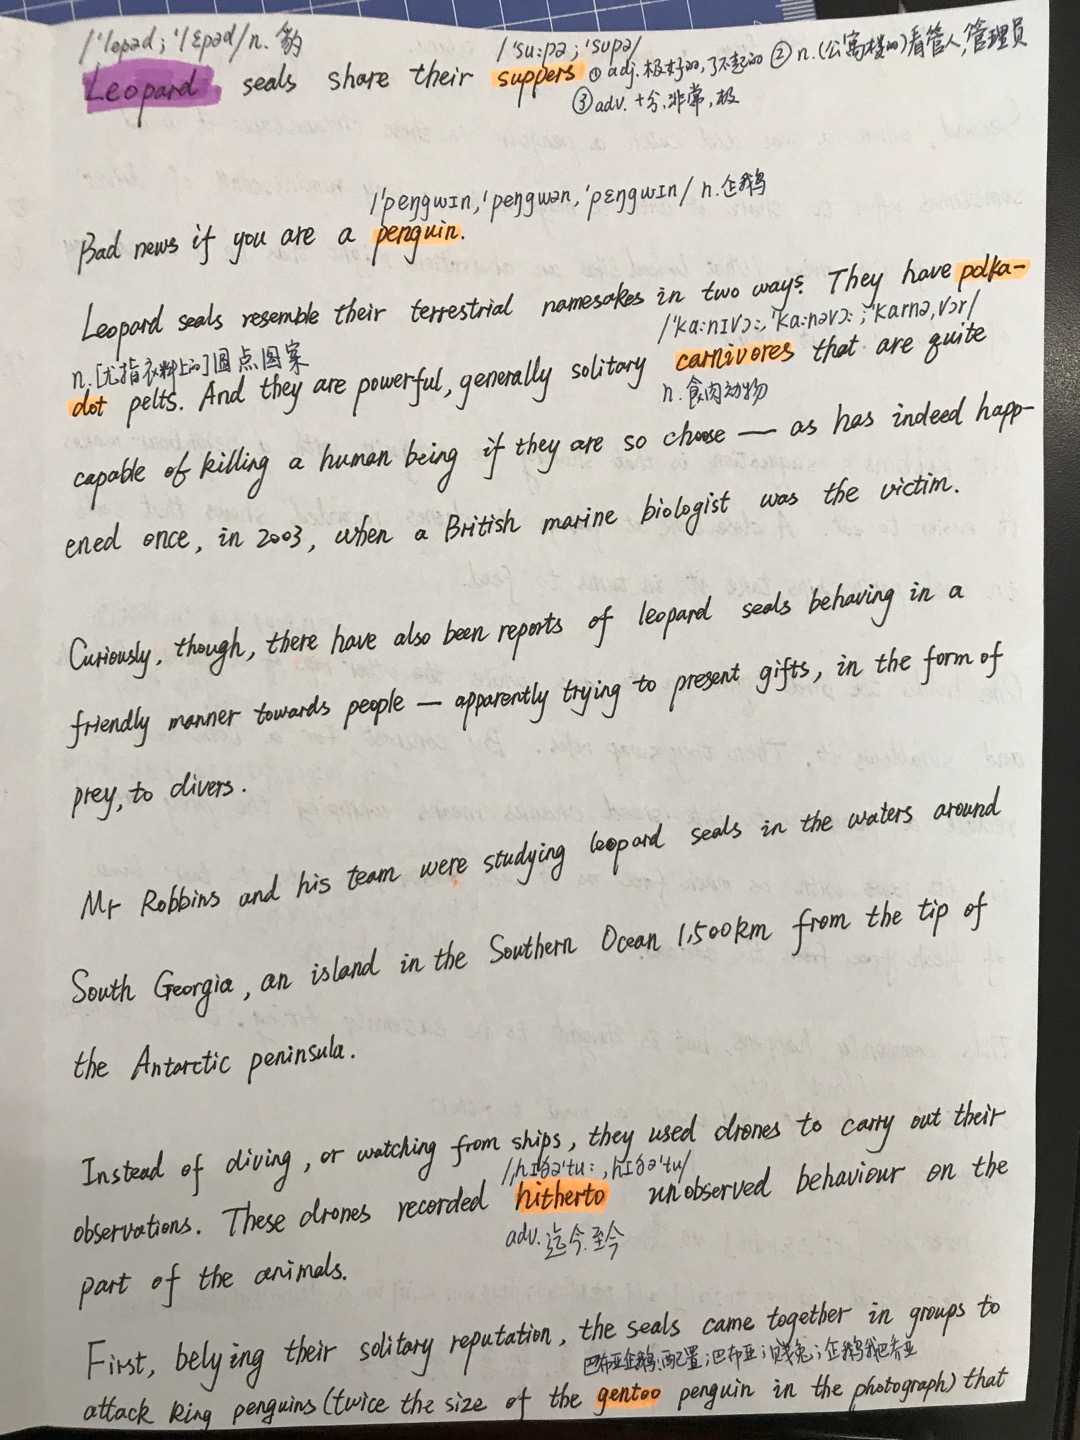 /'lepəd; 'lɛpəd/ n. 豹
/'su:pə; 'supə/
Leopard seals share their suppers ① adj. 极好的,了不起的 ② n. (公寓楼的)看管人,管理员
③ adv. 十分,非常,极
/'peŋgwɪn, 'peŋgwən, 'pɛŋgwɪn/ n. 企鹅
Bad news if you are a penguin.
Leopard seals resemble their terrestrial namesakes in two ways. They have polka-
/'kɑ:nɪvɔ:, 'kɑ:nəvɔ: ; 'kɑrnə,vɔr/
n. [尤指衣料上的]圆点图案
dot pelts. And they are powerful, generally solitary carnivores that are quite
n. 食肉动物
capable of killing a human being if they are so choose — as has indeed happ-
ened once, in 2003, when a British marine biologist was the victim.
Curiously, though, there have also been reports of leopard seals behaving in a
friendly manner towards people — apparently trying to present gifts, in the form of
prey, to divers.
Mr Robbins and his team were studying leopard seals in the waters around
South Georgia, an island in the Southern Ocean 1,500km from the tip of
the Antarctic peninsula.
Instead of diving, or watching from ships, they used drones to carry out their
/,hɪðə'tu: ,hɪðə'tu/
observations. These drones recorded hitherto unobserved behaviour on the
adv. 迄今.至今
part of the animals.
First, belying their solitary reputation, the seals came together in groups to
巴布亚企鹅;配置;巴布亚;贱兔;企鹅我巴布亚
attack king penguins (twice the size of the gentoo penguin in the photograph) that